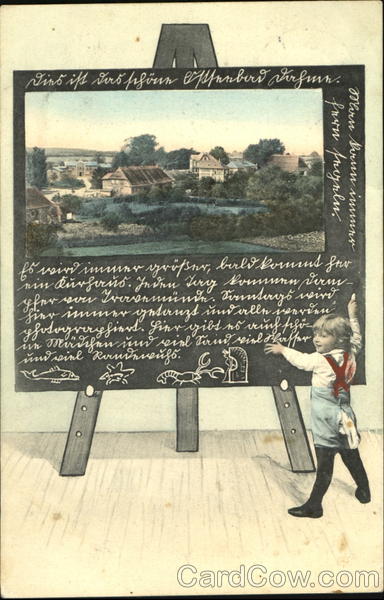 Dies ist das schöne Ostseebad Dahme.
Man kann immer
fern segeln
Es wird immer größer, bald kommt her
ein Kurhaus. Jeden Tag kommen Dam-
pfer von Travemünde. Sonntags wird
hier immer getanzt und alle werden
photographiert. Hier gibt es auch schö-
ne Mädchen und viel Sand viel Wasser
und viel Randewuhs.
CardCow.com